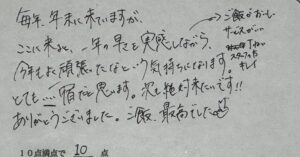 毎年、年末に来ていますが、
ここに来ると、一年の早さを実感しながら、
今年もまた頑張ったなという気持ちになります。
とても 宿だと思います。次も絶対来たいです!!
ありがとうございました。ご飯、最高でした
→ご飯がおいしい
サービスがいい
丁ねい
スタッフの方
キレイ
10点満点で 10 点